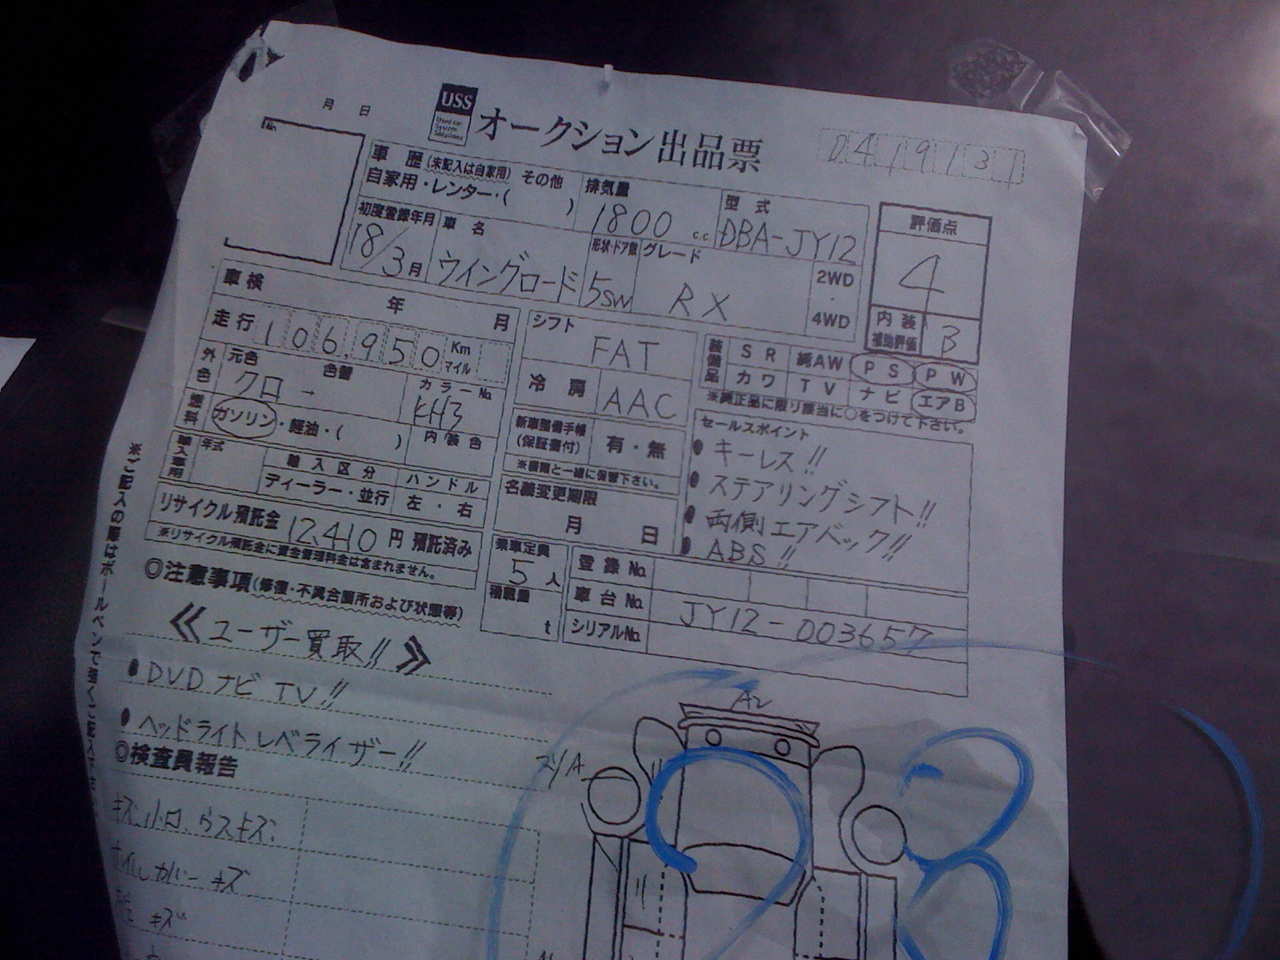 月 日
USS
Used car System Solutions
オークション出品票
0419131
No.
車歴(未記入は自家用) その他
自家用・レンター・( )
排気量
1800 c.c
型式
DBA-JY12
評価点
4
初度登録年月
18/3月
車名
ウイングロード
形状・ドア数
5SW
グレード
RX
2WD
・
4WD
内装
補助評価
B
車検 年 月
走行 106,950 Km マイル
シフト
FAT
装備品
SR 純AW PS PW
カワ TV ナビ エアB
※純正品に限り該当に○をつけて下さい。
外色
元色 色替
クロ →
カラーNo.
KH3
冷房
AAC
燃料
ガソリン・軽油・( )
内装色
新車整備手帳
(保証書付)
有・無
※書類と一緒に保管下さい。
セールスポイント
キーレス!!
ステアリングシフト!!
両側エアバック!!
ABS!!
輸入車用
年式
輸入区分
ディーラー・並行
ハンドル
左・右
名義変更期限
月 日
リサイクル預託金 12,410円 預託済み
※リサイクル預託金に資金管理料金は含まれません。
乗車定員
5人
積載量
t
登録No.
車台No. JY12-003657
シリアルNo.
◎注意事項(修復・不具合箇所および状態等)
≪ユーザー買取!!≫
DVDナビTV!!
ヘッドライトレベライザー!!
◎検査員報告
キズ小凹、ウスキズ
カバー キズ
キズ
A2
23